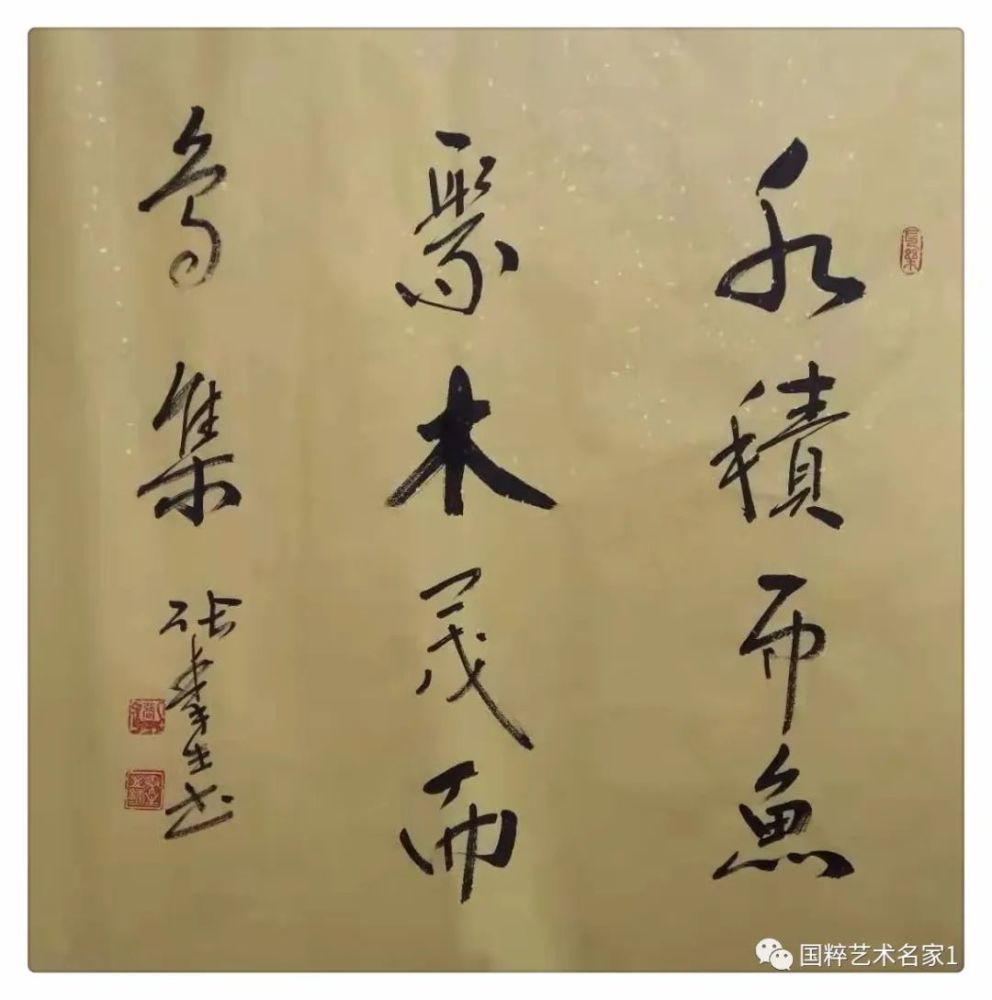 水積而魚
聚木茂而
鳥集
张李生书
国粹艺术名家1